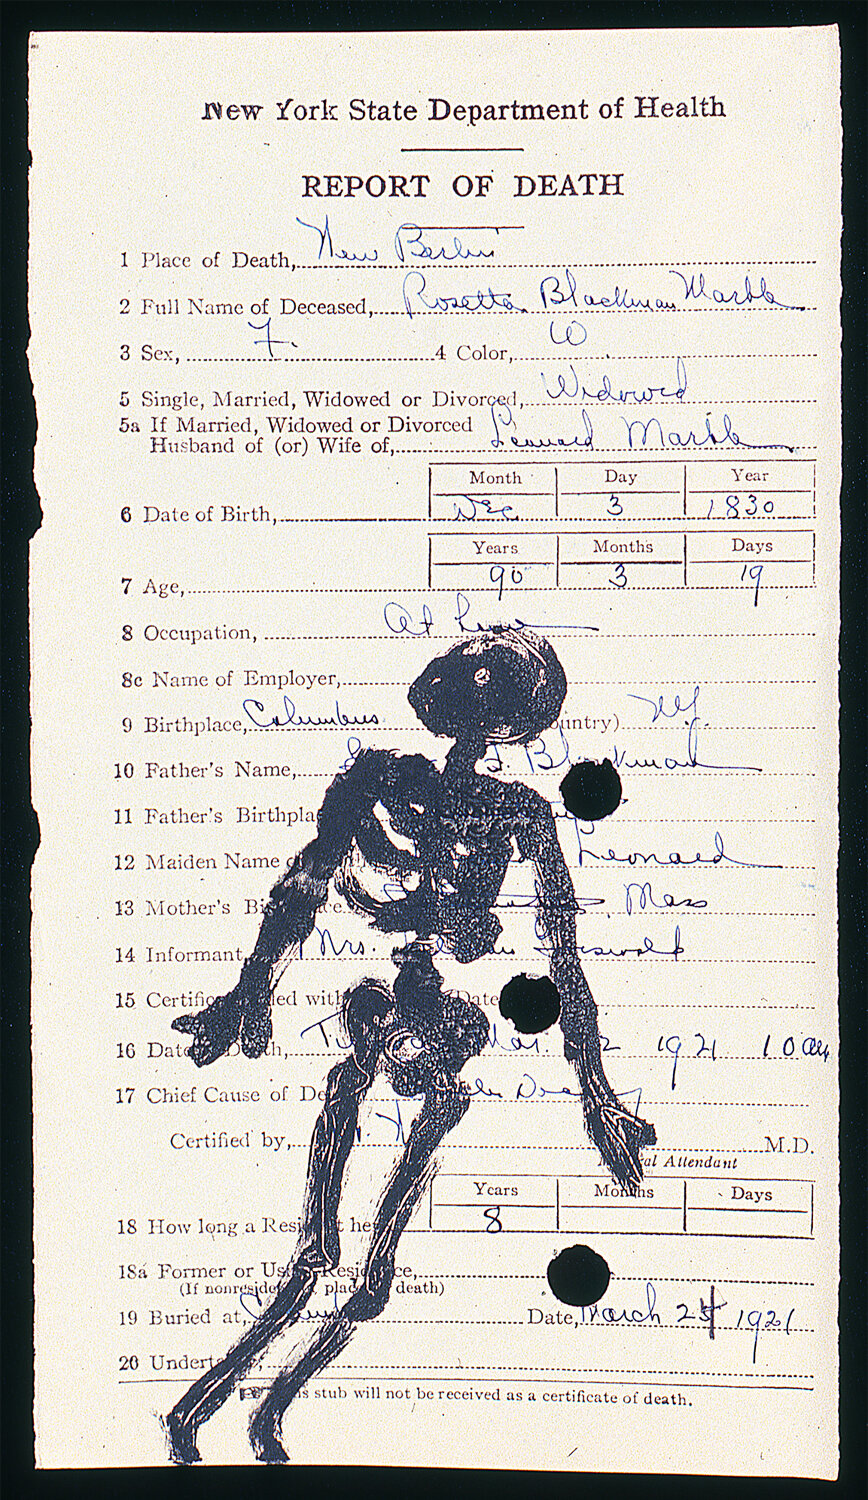 New York State Department of Health
REPORT OF DEATH
1 Place of Death, New Berlin
2 Full Name of Deceased, Rosetta Blackman Marble
3 Sex, F. 4 Color, W
5 Single, Married, Widowed or Divorced, Widowed
5a If Married, Widowed or Divorced
Husband of (or) Wife of, Leonard Marble
Month Day Year
6 Date of Birth, Dec 3 1830
Years Months Days
7 Age, 90 3 19
8 Occupation, At
8c Name of Employer,
9 Birthplace, Columbus untry) NY.
10 Father's Name, Blackman
11 Father's Birthpla
12 Maiden Name Leonard
13 Mother's Bi ce Mass
14 Informant, Mrs.
15 Certific ed with Date
16 Date Death, Mar. 2 1921 10 am
17 Chief Cause of De
Certified by, M.D.
al Attendant
Years Months Days
18 How long a Resident he 8
18a Former or Us Residence,
(If nonreside plac death)
19 Buried at, Date, March 24 1921
20 Underta
is stub will not be received as a certificate of death.